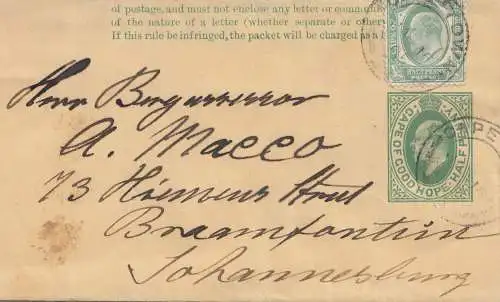 of postage, and must not enclose any letter or commun
of the nature of a letter (whether separate or other
If this rule be infringed, the packet will be charged as a l
Herr
A. Macco
73 Street
Braamfontein
Johannesburg
HALF PENNY
CAPE OF GOOD HOPE